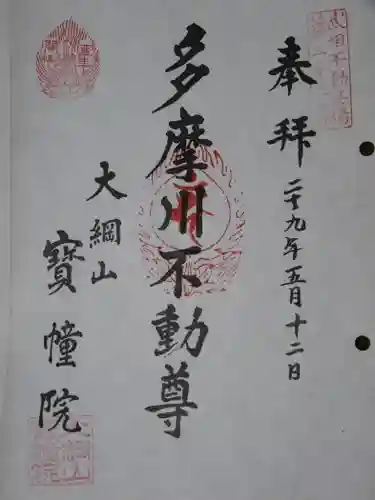 奉拝
二十九年五月十二日
多摩川不動尊
大綱山
寳幢院